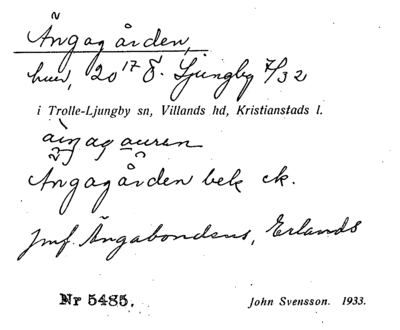 Ängagården,
hus, 20¹⁷ Ö. Ljungby 7/32
i Trolle-Ljungby sn, Villands hd, Kristianstads l.
Ängagården bek ck.
jmf. Ängabondens, Erlands
Nr 5485.
John Svensson. 1933.